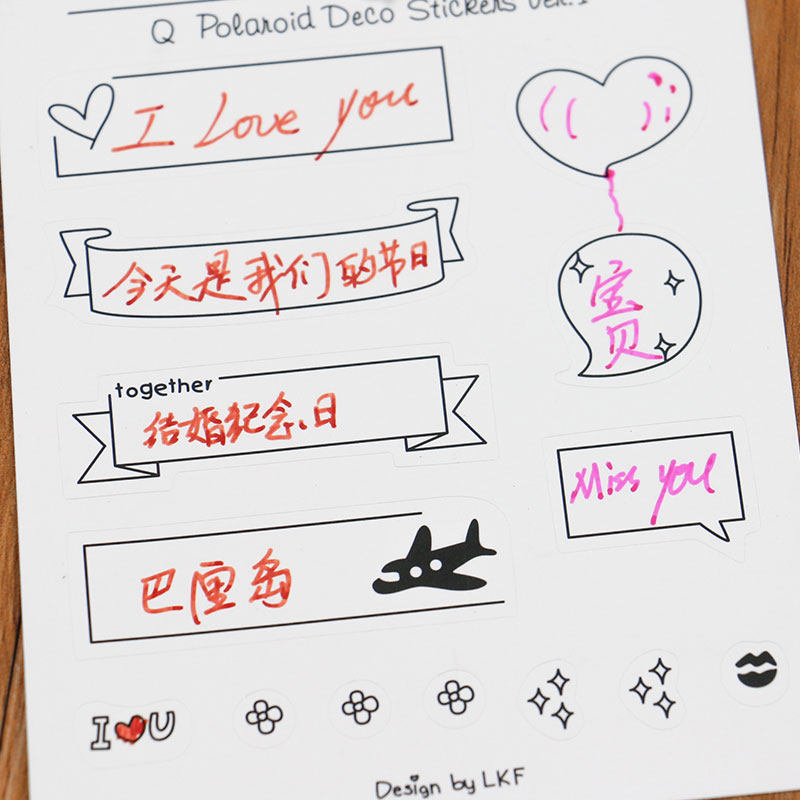 Q Polaroid Deco Stickers Ver.1
I Love you
今天是我们的节日
宝
贝
together
结婚纪念日
Miss you
巴厘岛
I U
Design by LKF